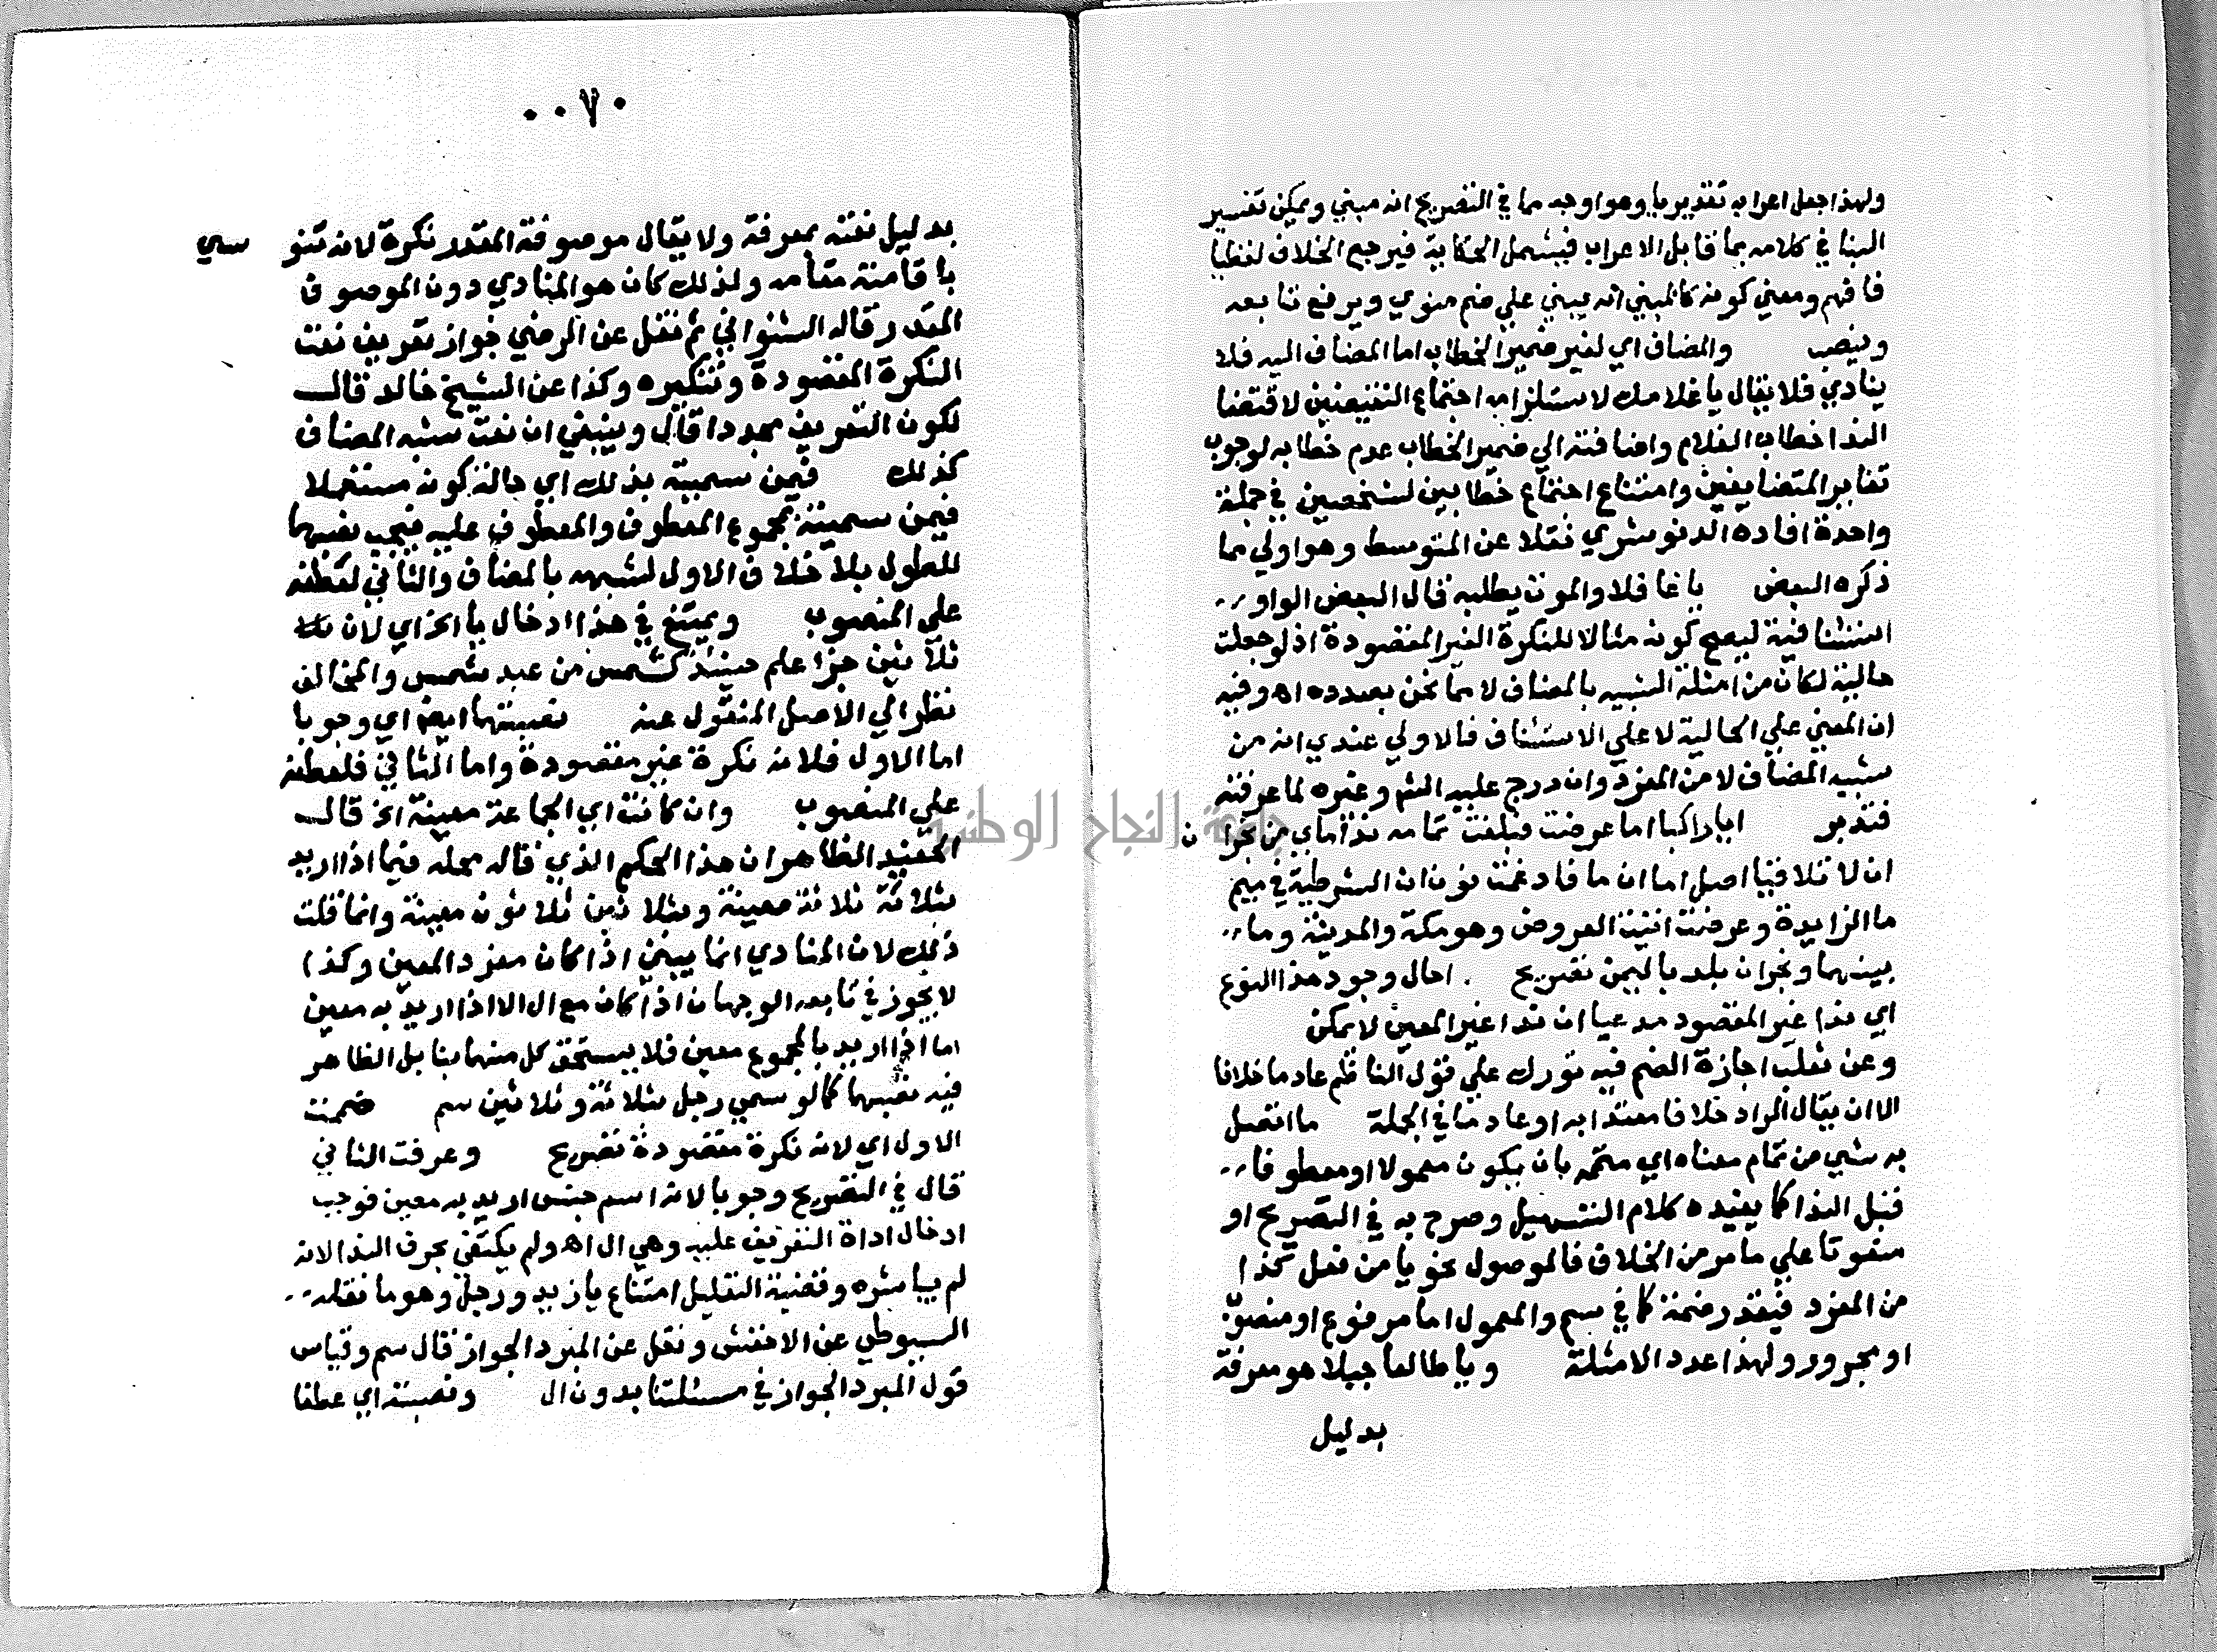 ولهذا جعل اعرابه تقديريا وهو اوجه مما في التصريح انه مبني ويمكن تفسير
البنا في كلامه بما قابل الاعراب فيشمل الحكاية فيرجع الخلاف لفظيا
فافهم ومعني كونه كالمبني انه يبني علي ضم منوي ويرفع تابعه
وينصب والمضاف اي لغير ضمير الخطاب اما المضاف اليه فلا
ينادي فلا يقال يا غلامك لاستلزامه اجتماع النقيضين لاقتضا
الندا خطاب الغلام واضافته الي ضمير الخطاب عدم خطابه لوجوب
تغاير المتضايفين وامتناع اجتماع خطابين لشخصين في جملة
واحدة افاده الدنوشري نقلا عن المتوسط وهو اولي مما
ذكره البعض يا غافلا والموت يطلبه قال البعض الواو
استئنافية ليصح كونه مثالا للنكرة الغير المقصودة اذ لو جعلت
حالية لكان من امثلة الشبيه بالمضاف لا مما نحن بصدده اه وفيه
ان المعني علي الحالية لا علي الاستئناف فالاولي عندي انه من
شبيه المضاف لا من المفرد وان درج عليه الشم وغيره لما عرفته
فتدبر ايا راكبا اما عرضت فبلغن تمامه نداماي من نجران
ان لا تلاقيا اصل اما ان ما فادغمت نون ان الشرطية في ميم
ما الزايدة وعرضت اتيت العروض وهو مكة والمدينة وما
بينهما ونجران بلد باليمن تصريح . احال وجود هذا النوع
اي ندا غير المقصود مدعيا ان ندا غير المعين لا يمكن
وعن ثعلب اجازة الضم فيه تورك علي قول الناظم عادما خلافا
الا ان يقال المراد خلافا معتدا به او عادما في الجملة ما اتصل
به شي من تمام معناه اي متممه بان يكون معمولا او معطوفا
قبل الندا كما يفيده كلام التسهيل وصرح به في التصريح او
منعوتا علي ما مر من الخلاف فالموصول نحو يا من فعل كذا
من المفرد فيقدر ضمه كما في سم والمعمول اما مرفوع او منصوب
او مجرور ولهذا عدد الامثلة ويا طالعا جبلا هو معرفة
بدليل
٠٧٠٠
بدليل نعته بمعرفة ولا يقال موصوفه المقدر نكرة لانه تنوسي
باقامته مقامه ولذلك كان هو المنادي دون الموصوف
المقدر قاله الشنواني ثم نقل عن الرضي جواز تعريف نعت
النكرة المقصودة وتنكيره وكذا عن الشيخ خالد قال
لكون التعريف مجددا قال وينبغي ان نعت شبه المضاف
كذلك فيمن سميته بذلك اي حالة كونه مستعملا
فيمن سميته بمجموع المعطوف والمعطوف عليه فيجب نصبهما
للطول بلا خلاف الاول لشبهه بالمضاف والثاني لعطفه
علي المنصوب ويمتنع في هذا ادخال يا الخ اي لان
ثلاثين جزا علم حينئذ كشمس من عبد شمس والمخالف
نظر الي الاصل المنقول عنه نصبتهما ايضا اي وجوبا
اما الاول فلانه نكرة غير مقصودة واما الثاني فلعطفه
علي المنصوب وان كانت اي الجماعة معينة الخ قال
المفيد الظاهر ان هذا الحكم الذي قاله محله فيما اذا اريد
بثلاثة ثلاثة معينة وبثلاثين ثلاثون معينة وانما قلت
ذلك لان المنادي انما يبني اذا كان مفرد المعين وكذا
لا يجوز في تابعه الوجهان اذا كان مع ال الا اذا اريد به معين
اما اذا اريد بالمجموع معين فلا يستحق كل منهما بنا بل الظاهر
فيه نصبهما كما لو سمي رجل بثلاثة وثلاثين سم ضممت
الاول اي لانه نكرة مقصودة تصريح وعرفت الثاني
قال في التصريح وجوبا لانه اسم جنس اريد به معين فوجب
ادخال اداة التعريف عليه وهي ال اه ولم يكتفي بحرف الندا لانه
لم يباشره وقضية التعليل امتناع يا زيد ورجل وهو ما نقله
السيوطي عن الاخفش ونقل عن المبرد الجواز قال سم وقياس
قول المبرد الجواز في مسئلتنا بدون ال ونصبته اي عطفا
جامعة النجاح الوطنية